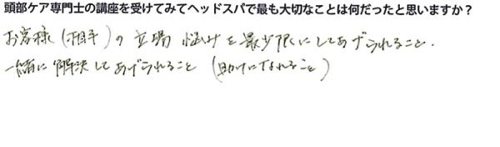 頭部ケア専門士の講座を受けてみてヘッドスパで最も大切なことは何だったと思いますか？
お客様（相手）の立場 悩みを最少限にしてあげられること.
一緒に解決してあげられること（助けになれること）